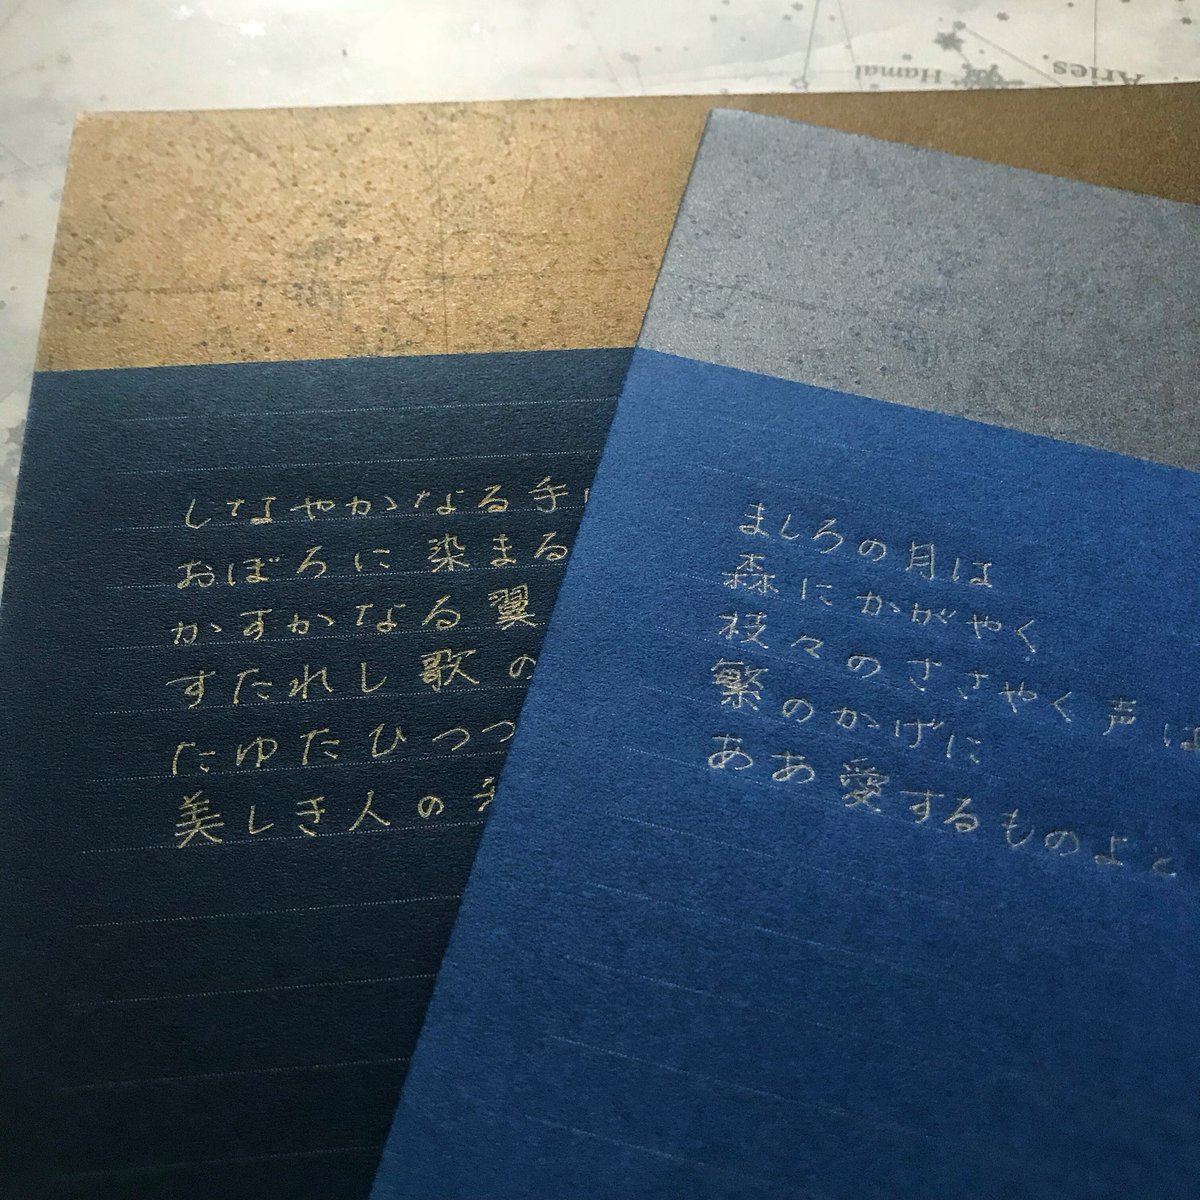 Aries.
Hamal
しなやかなる手
おぼろに染まる
かすかなる翼
すたれし歌の
たゆたひつつ
美しき人の
ましろの月は
森にかがやく
枝々のささやく声は
繁のかげに
ああ愛するものよと